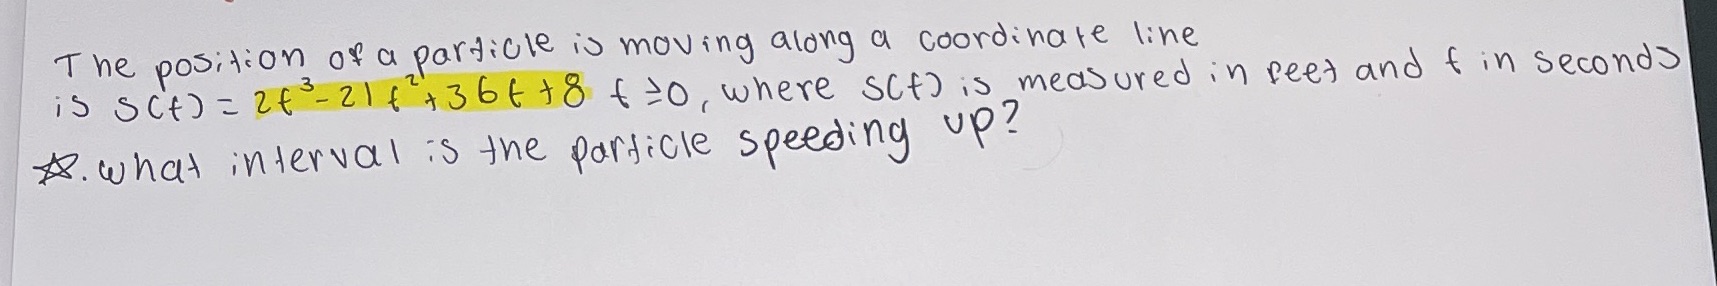 The position of a particle is moving along a coordinate line
is s(t) = 2t³ - 21t² + 36t + 8 t ≥ 0, where s(t) is measured in feet and t in seconds
☆. what interval is the particle speeding up?